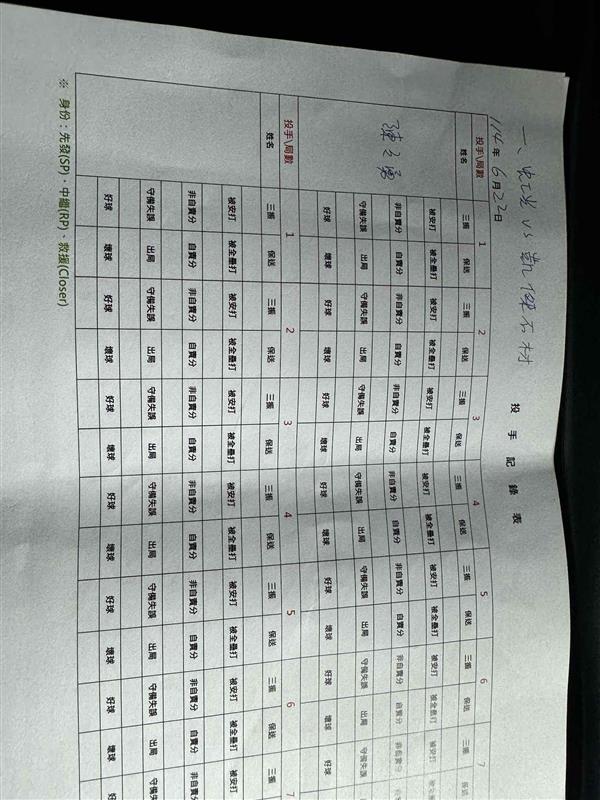 投手記錄表
一、 VS 石材
114年6月22日
投手\局數 1 2 3 4 5 6 7
姓名 三振 保送 三振 保送 三振 保送 三振 保送 三振 保送 三振 保送 三振 保送
被安打 被全壘打 被安打 被全壘打 被安打 被全壘打 被安打 被全壘打 被安打 被全壘打 被安打 被全壘打 被安打 被全
陳 勇 非自責分 自責分 非自責分 自責分 非自責分 自責分 非自責分 自責分 非自責分 自責分 非自責分 自責分 非自責分 自責
守備失誤 出局 守備失誤 出局 守備失誤 出局 守備失誤 出局 守備失誤 出局 守備失誤 出局 守備失誤
好球 壞球 好球 壞球 好球 壞球 好球 壞球 好球 壞球 好球 壞球 好球
投手\局數 1 2 3 4 5 6 7
姓名 三振 保送 三振 保送 三振 保送 三振 保送 三振 保送 三振 保送 三振
被安打 被全壘打 被安打 被全壘打 被安打 被全壘打 被安打 被全壘打 被安打 被全壘打 被安打 被全壘打 被安打
非自責分 自責分 非自責分 自責分 非自責分 自責分 非自責分 自責分 非自責分 自責分 非自責分 自責分 非自責
守備失誤 出局 守備失誤 出局 守備失誤 出局 守備失誤 出局 守備失誤 出局 守備失誤 出局 守備失
好球 壞球 好球 壞球 好球 壞球 好球 壞球 好球 壞球 好球 壞球 好
※ 身份：先發(SP)、中繼(RP)、救援(Closer)